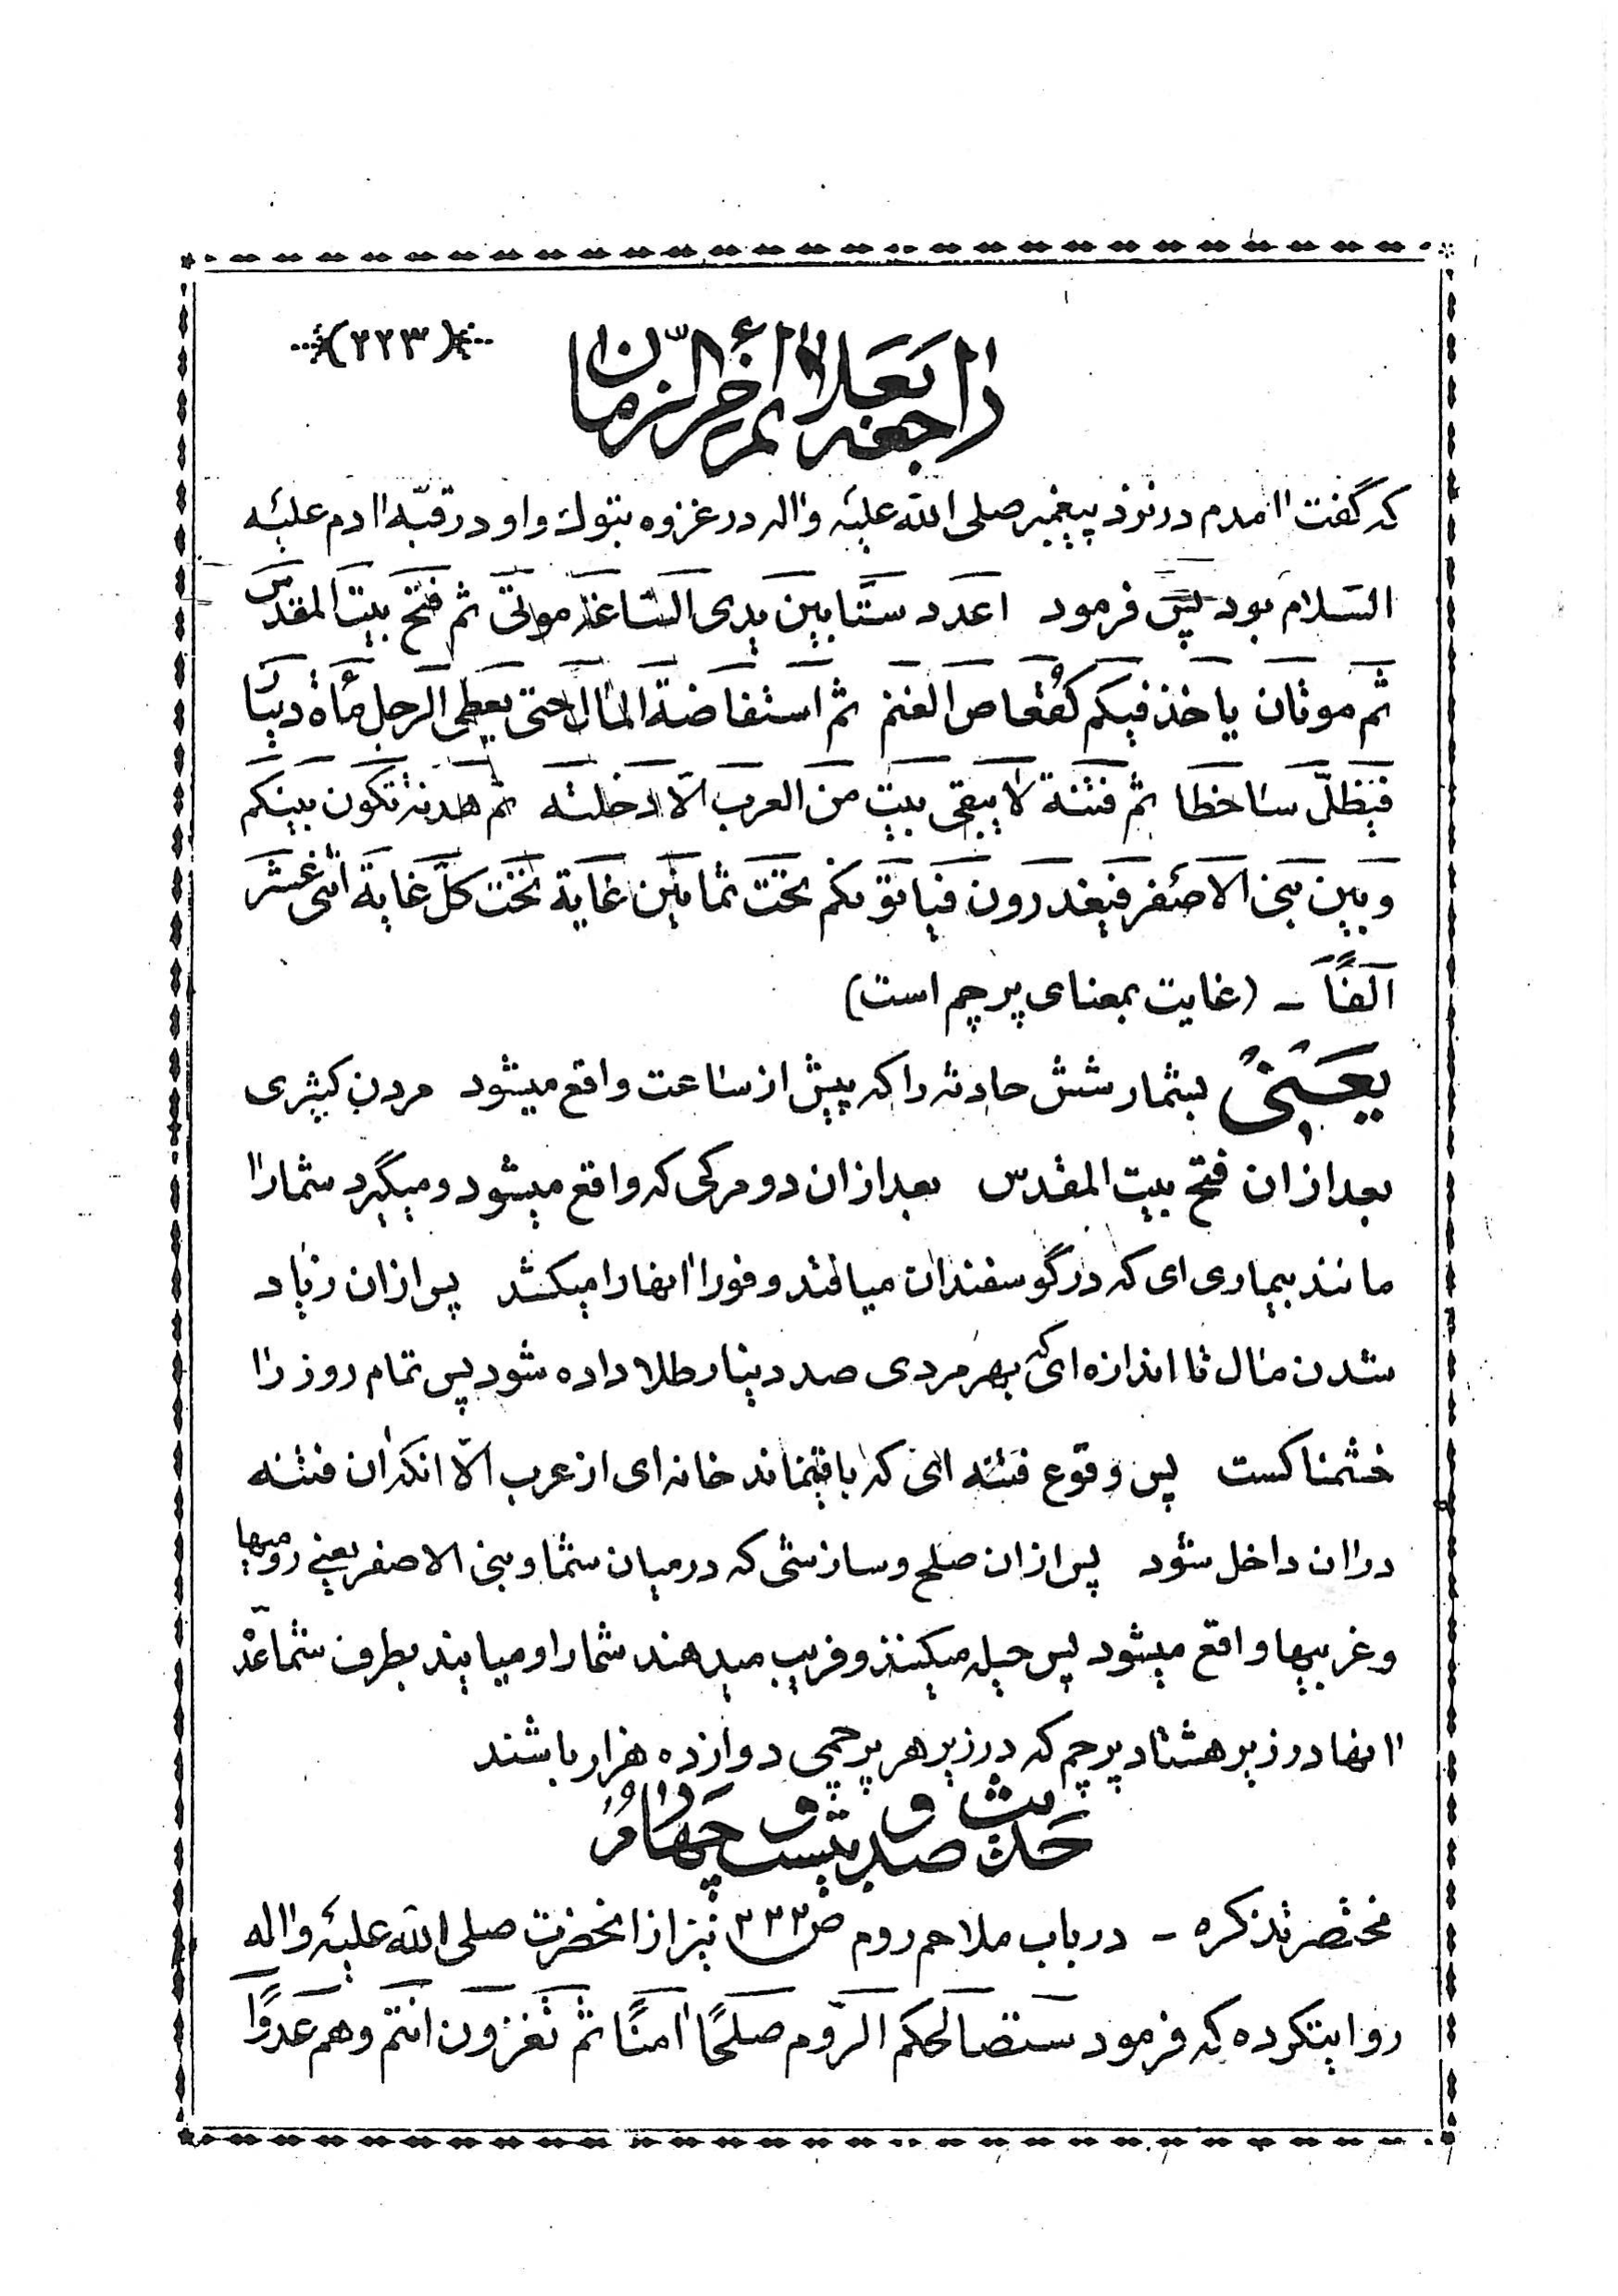 (۲۲۳)
راجع بعلائم آخر الزمان
که گفت آمدم در نزد پیغمبر صلی الله علیه واله در غزوه بتوک واو در قبّه ادم علیه
السّلام بود پس فرمود اعدد ستّا بین یدی السّاعة موتی ثم فتح بیت المقدس
ثم موتان یاخذ فیکم کقعاص الغنم ثم استفاضة المال حتی یعطی الرجل مأة دینا
فیظلّ ساخطا ثم فتنة لا یبقی بیت من العرب الّا دخلته ثم هدنة تکون بینکم
وبین بنی الاصفر فیغدرون فیاتوکم تحت ثمانین غایة تحت کلّ غایة اثنی عشر
آلفًا - (غایت بمعنای پرچم است)
یعنی بشمار شش حادثه را که پیش از ساعت واقع میشود مردن کثیری
بعد از ان فتح بیت المقدس بعد از ان دو مرکی که واقع میشود ومیگیرد شمارا
مانند بیماری ای که در گوسفندان میافتد وفورا انها را میکشد پس از ان زیاد
شدن مال تا اندازه ای که بهر مردی صد دینار طلا داده شود پس تمام روز را
خشمناکست پس وقوع فتنه ای که باقینماند خانه ای از عرب الّا انکه ان فتنه
در ان داخل شود پس از ان صلح وسازشی که در میان شما وبنی الاصفر یعنی رومیها
وغربیها واقع میشود پس حیله میکنند وفریب میدهند شمارا ومیایند بطرف شما عدّه
انها در زیر هشتاد پرچم که در زیر هر پرچمی دوازده هزار باشند
حدیث صد و بیست و چهارم
مختصر تذکره - در باب ملاحم روم ص ۲۳۲ نیز از انحضرت صلی الله علیه واله
روایتکرده که فرمود ستصالحکم الرّوم صلحًا امنًا ثم تغزون انتم وهم عدوًّا